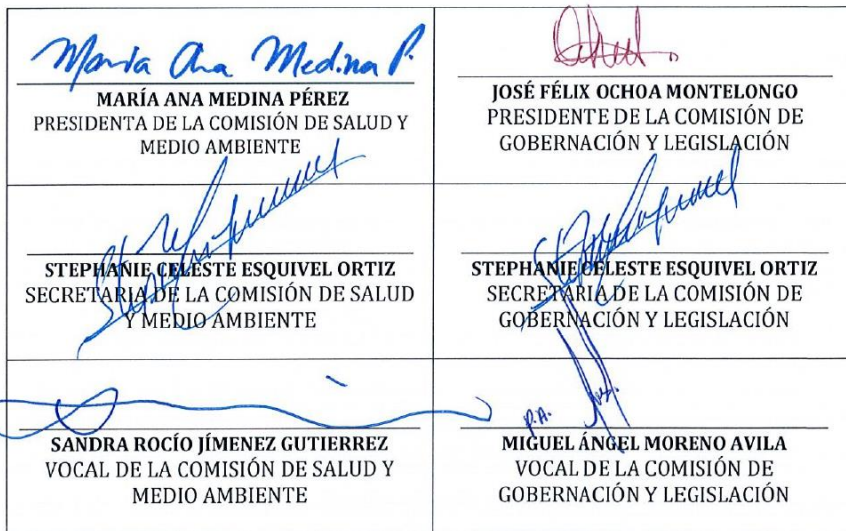 María Ana Medina P.
MARÍA ANA MEDINA PÉREZ
PRESIDENTA DE LA COMISIÓN DE SALUD Y
MEDIO AMBIENTE
JOSÉ FÉLIX OCHOA MONTELONGO
PRESIDENTE DE LA COMISIÓN DE
GOBERNACIÓN Y LEGISLACIÓN
STEPHANIE CELESTE ESQUIVEL ORTIZ
SECRETARIA DE LA COMISIÓN DE SALUD
Y MEDIO AMBIENTE
STEPHANIE CELESTE ESQUIVEL ORTIZ
SECRETARIA DE LA COMISIÓN DE
GOBERNACIÓN Y LEGISLACIÓN
SANDRA ROCÍO JÍMENEZ GUTIERREZ
VOCAL DE LA COMISIÓN DE SALUD Y
MEDIO AMBIENTE
P.A.
MIGUEL ÁNGEL MORENO AVILA
VOCAL DE LA COMISIÓN DE
GOBERNACIÓN Y LEGISLACIÓN